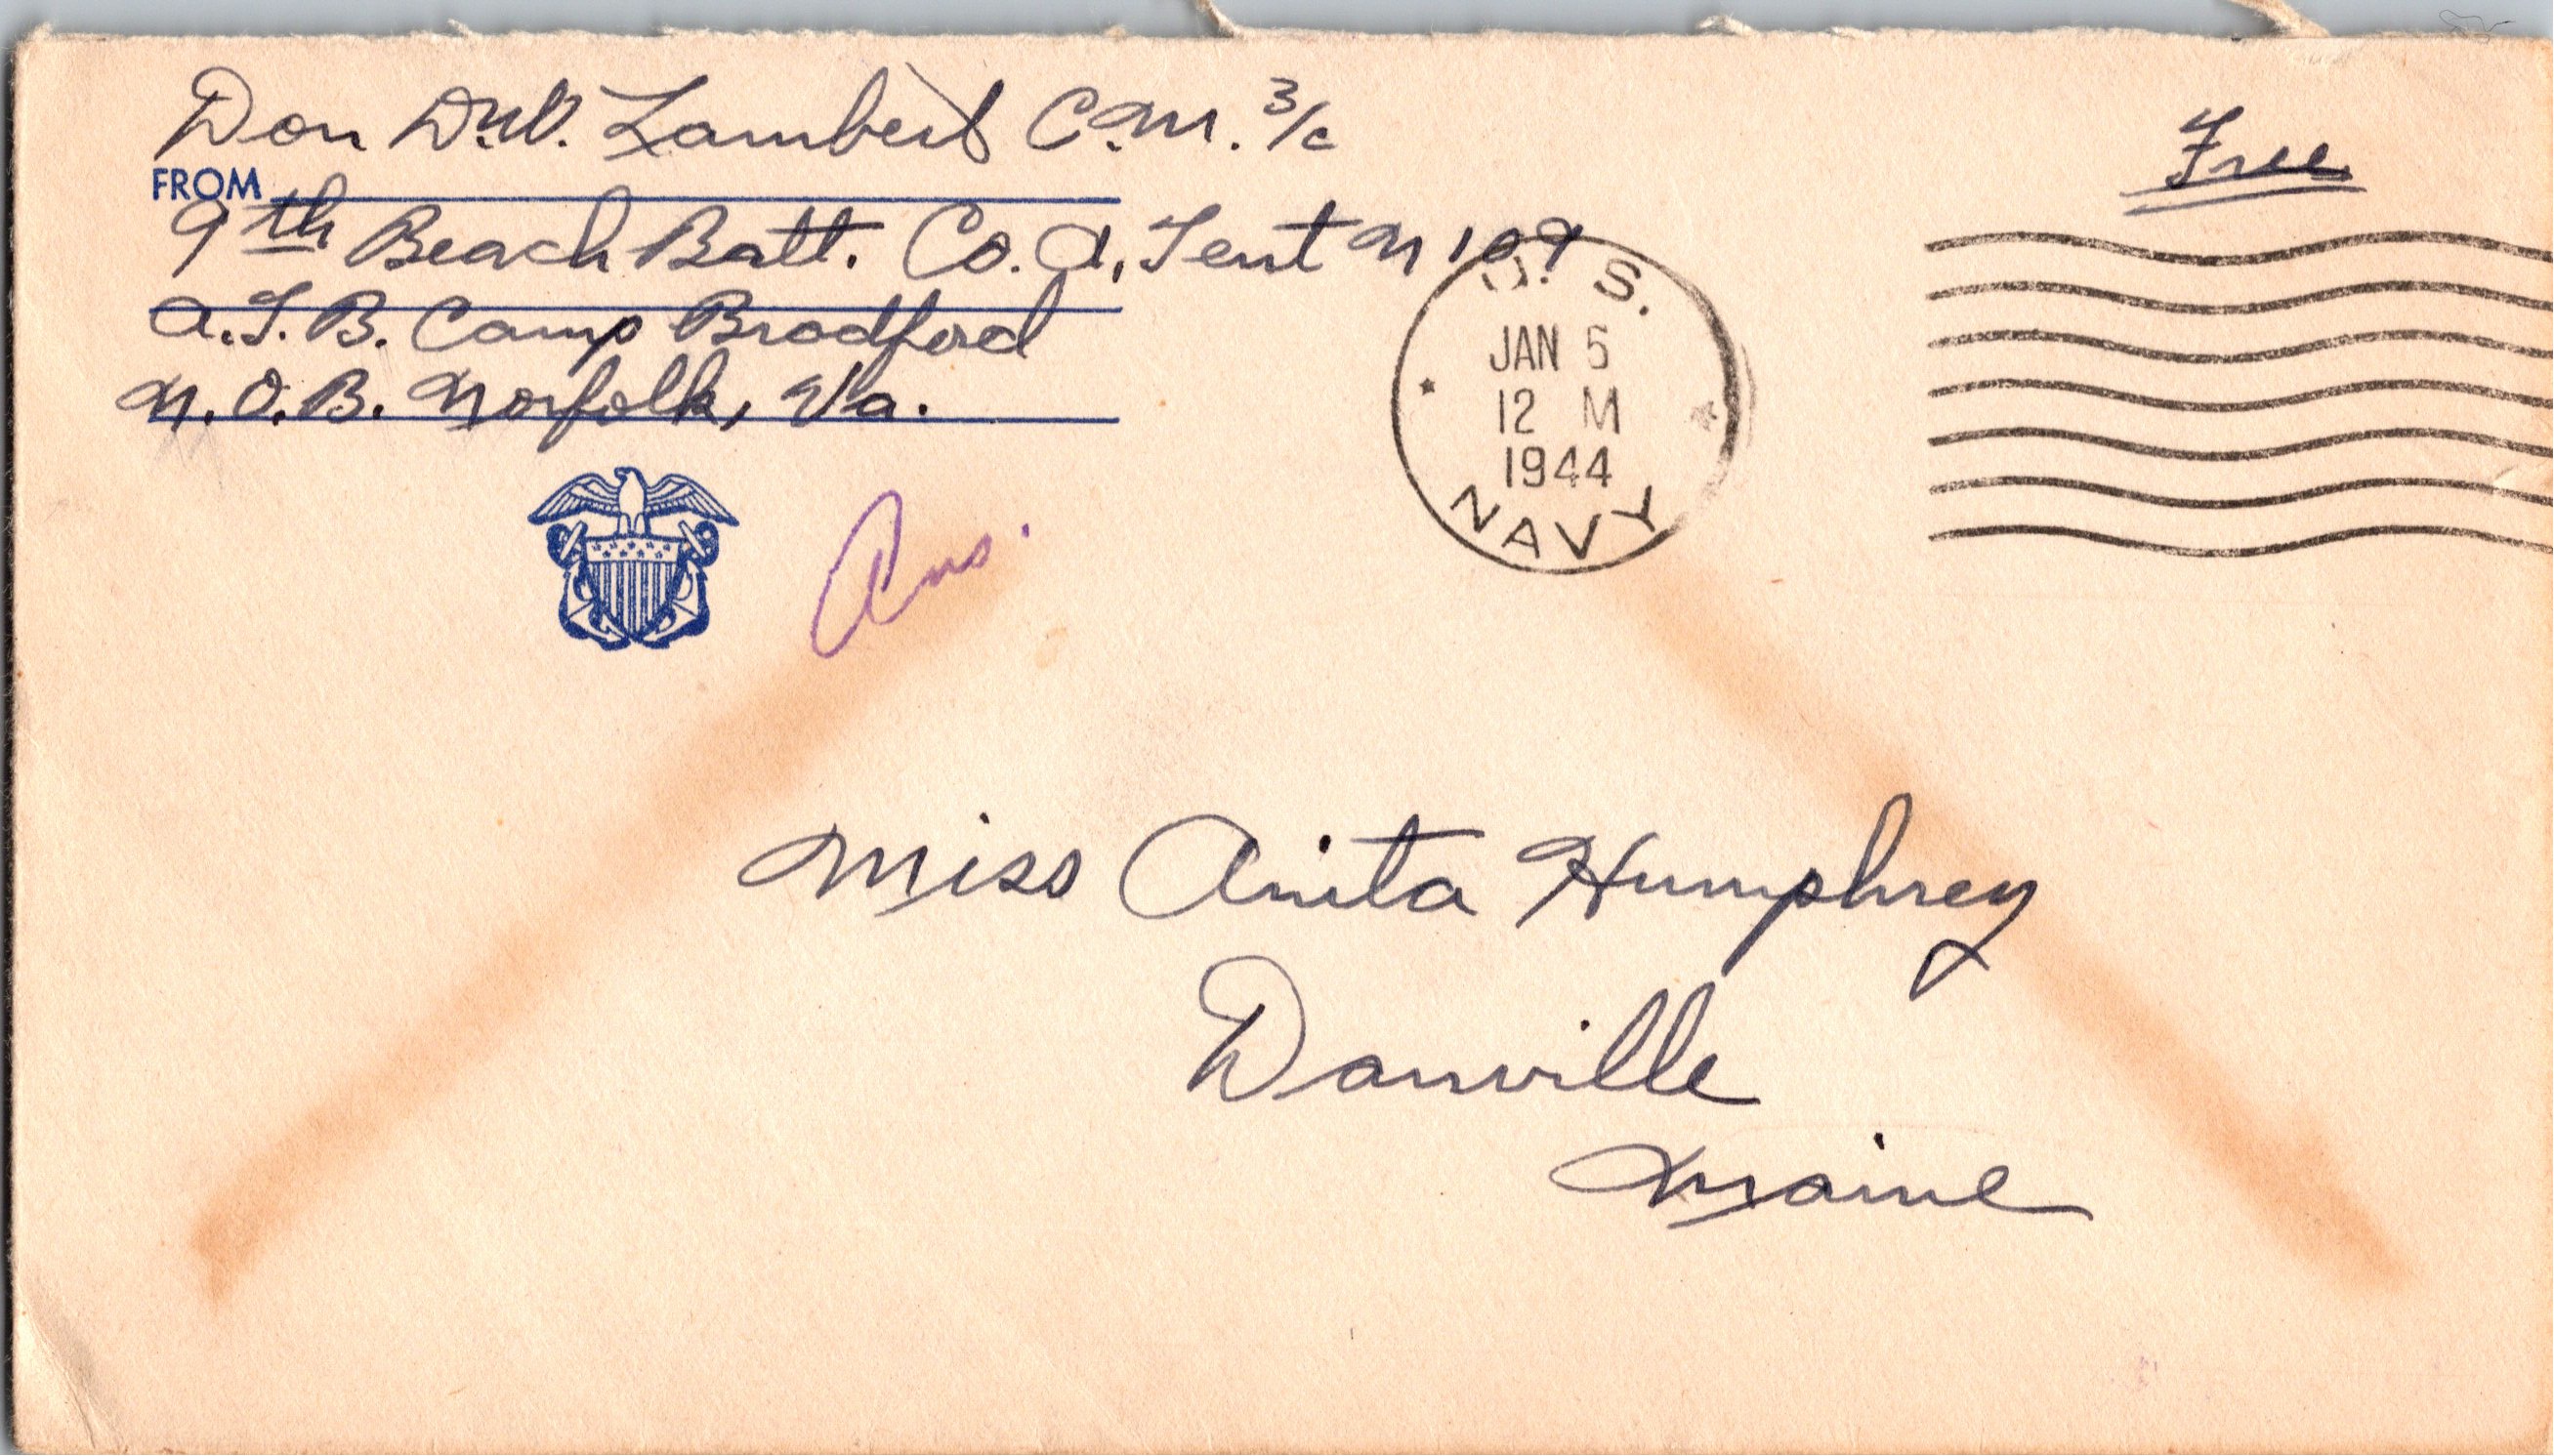 Don D.W. Lambert C.M. 3/c
FROM
9th Beach Batt. Co. A, Tent N 109
A.T.B. Camp Bradford
N.O.B. Norfolk, Va.
Free
U. S.
JAN 5
12 M
1944
NAVY
Ans.
Miss Anita Humphrey
Danville
Maine